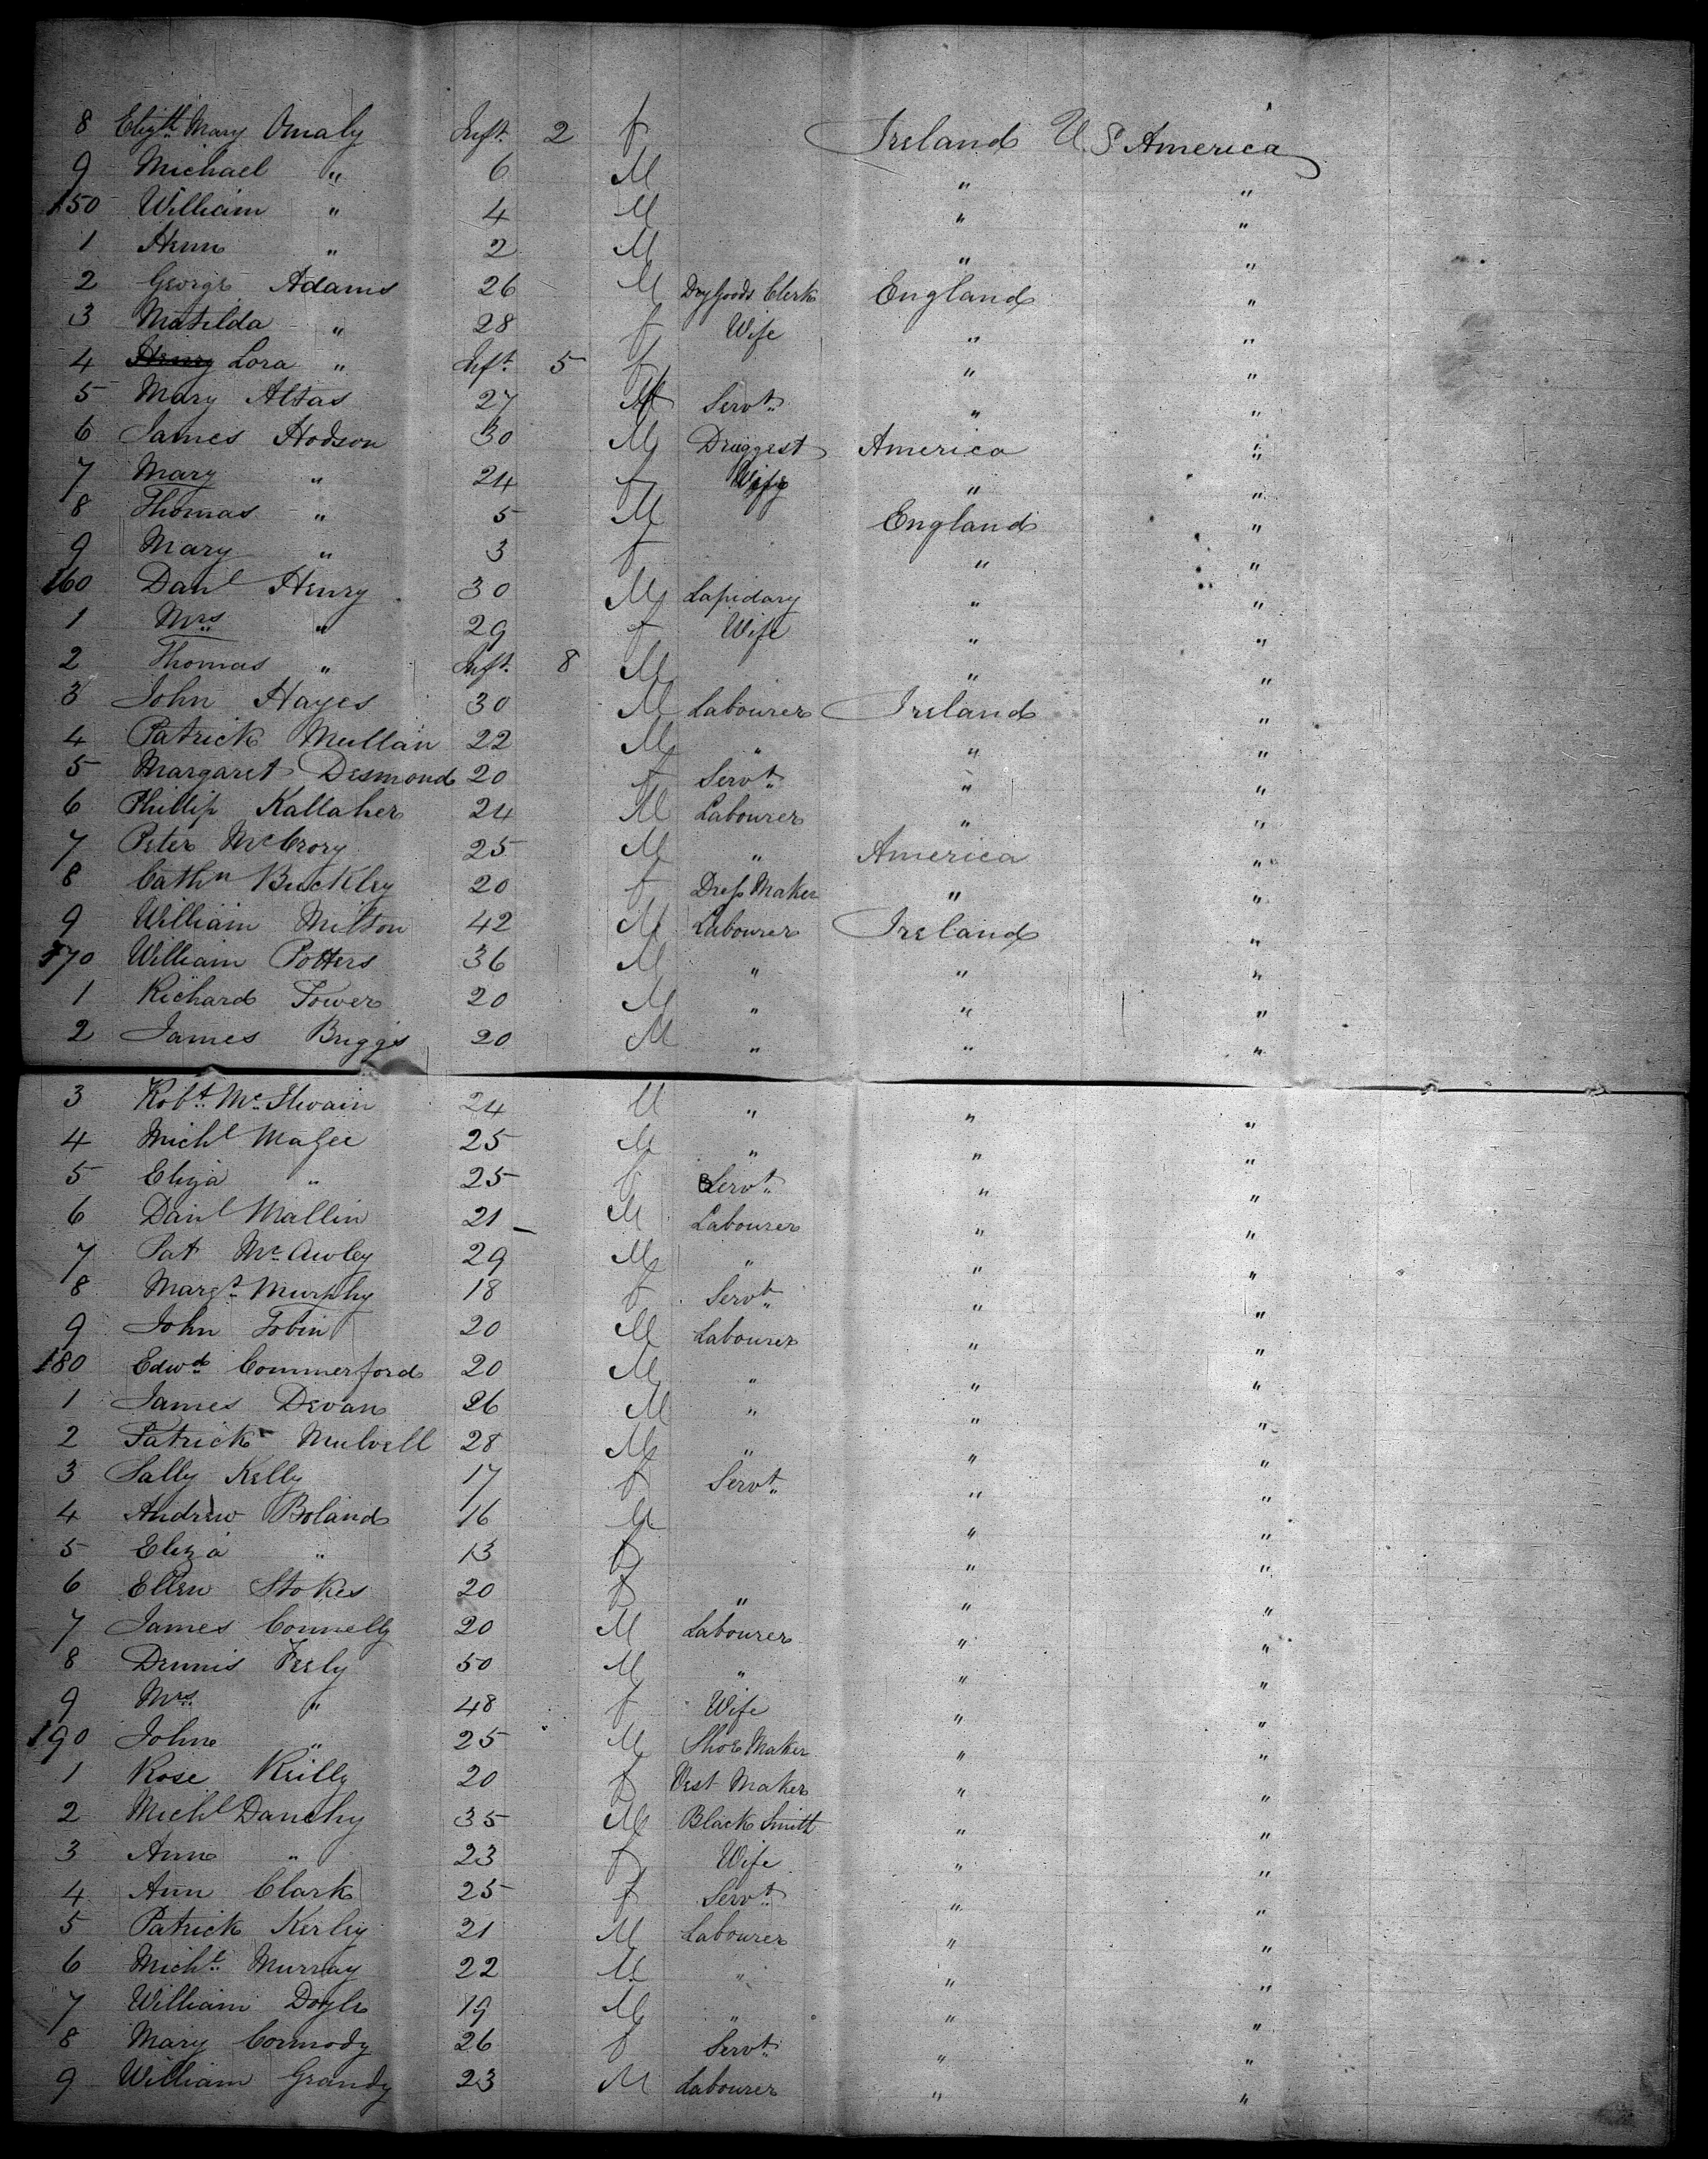 8 Elizth Mary Omaly Inft. 2 f Ireland U.S. America
9 Michael " 6 M " "
150 William " 4 M " "
1 Ann " 2 M " "
2 George Adams 26 M Dry Goods Clerk England "
3 Matilda " 28 f Wife " "
4 Henry Lora " Inft. 5 f " "
5 Mary Altas 27 Servt. " "
6 James Hodson 30 M Druggest America "
7 Mary " 24 f Wife " "
8 Thomas " 5 M England "
9 Mary " 3 f " "
160 Danl Henry 30 M Lapidary " "
1 Mrs " 29 f Wife " "
2 Thomas " Inft. 8 M " "
3 John Hayes 30 M Labourer Ireland "
4 Patrick Mullan 22 M " " "
5 Margaret Desmond 20 f Servt. " "
6 Phillip Kallaher 24 M Labourer " "
7 Peter McCrory 25 M " America "
8 Cathn Buckley 20 f Dress Maker " "
9 William Milton 42 M Labourer Ireland "
170 William Potters 36 M " " "
1 Richard Tower 20 M " " "
2 James Briggs 20 M " " "
3 Robt. Mc.Ilwain 24 M " " "
4 Michl Magee 25 M " " "
5 Eliza " 25 f Servt. " "
6 Danl Mallin 21 M Labourer " "
7 Pat Mc.Awley 29 M " " "
8 Margt. Murphy 18 f Servt. " "
9 John Tobin 20 M Labourer " "
180 Edwd. Commerford 20 M " " "
1 James Devan 26 M " " "
2 Patrick Mulvell 28 M " " "
3 Sally Kelly 17 f Servt. " "
4 Andrew Boland 16 M " "
5 Eliza " 13 f " "
6 Ellen Stokes 20 f " " "
7 James Connelly 20 M Labourer " "
8 Dennis Feely 50 M " " "
9 Mrs " 48 f Wife " "
190 John " 25 M Shoe Maker " "
1 Rose Reilly 20 f Vest Maker " "
2 Michl Danehy 35 M Black Smith " "
3 Ann " 23 f Wife " "
4 Ann Clark 25 f Servt. " "
5 Patrick Kerley 21 M Labourer " "
6 Michl. Murray 22 M " " "
7 William Doyle 19 M " " "
8 Mary Cormody 26 f Servt. " "
9 William Grandy 23 M Labourer " "